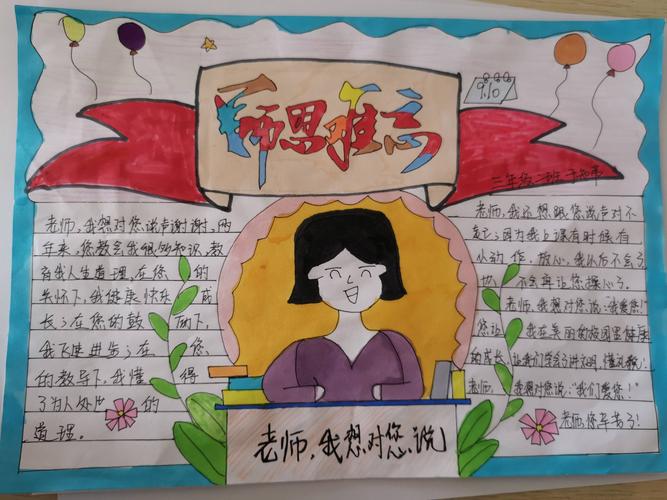 师恩难忘
9.10
三年级二班
老师,我想对您说声谢谢,两
年来,您教会我很多知识,教
育我人生道理,在您的
关怀下,我健康快乐成
长;在您的鼓励下,
我飞速进步;在您
的教导下,我懂得
了为人处世的
道理。
老师,我还想跟您说声对不
起;因为我上课有时候有
小动作,放心,我以后不会了
不会再让您操心了
老师,我想对您说:"我爱您!"
您让我在美丽的校园里健康
的成长,让我们学会了讲文明,懂礼貌!
老师,我想对您说:"我们爱您!"
老师,您辛苦了!
老师,我想对您说